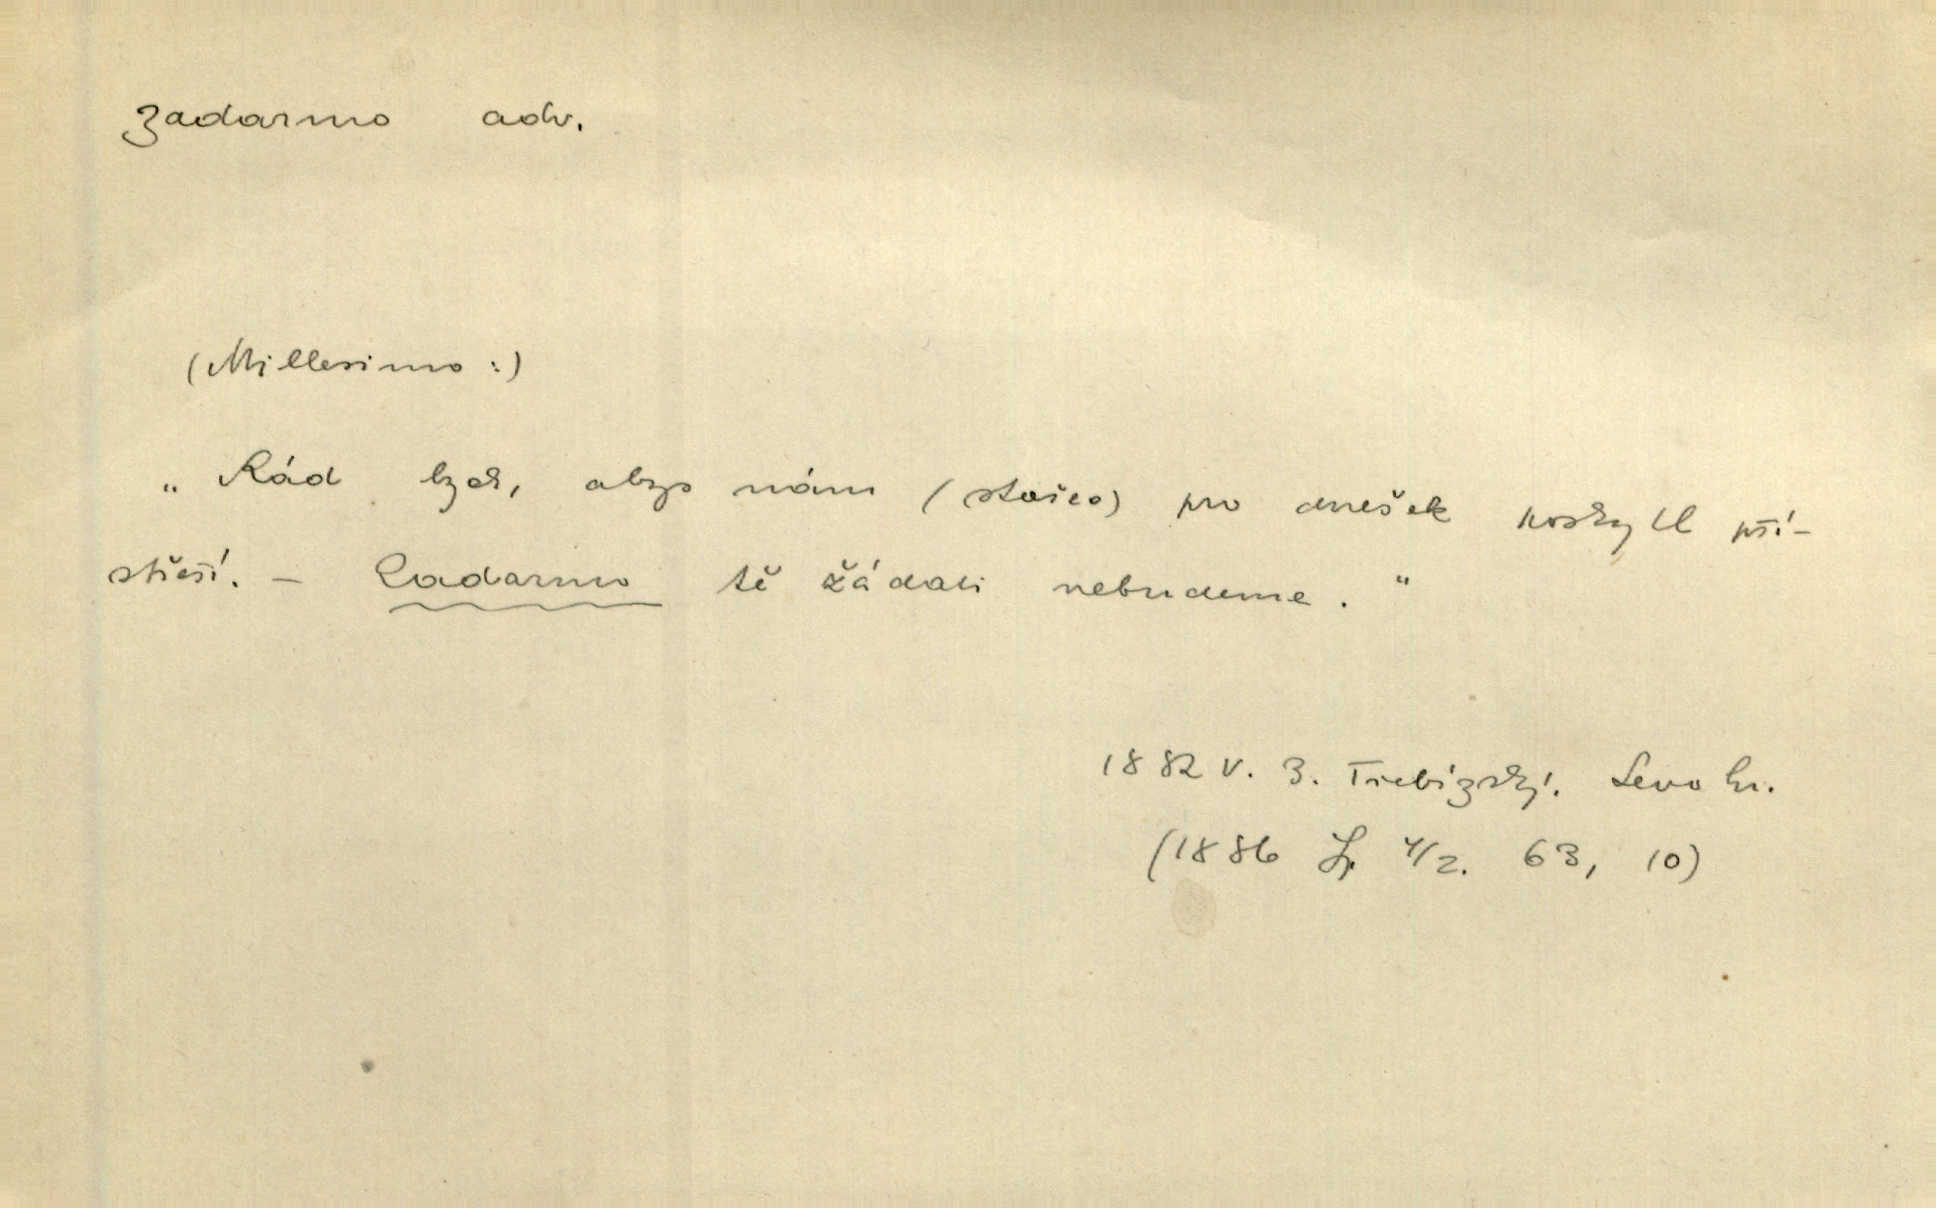 zadarmo adv.
(Millesimo:)
„Rád bych, abys nám (stařec) pro dnešek poskytl pří-
střeší. – Zadarmo tě žádati nebudeme."
1882 V. B. Třebízský. Levo hr.
(1886 4/2. 63, 10)